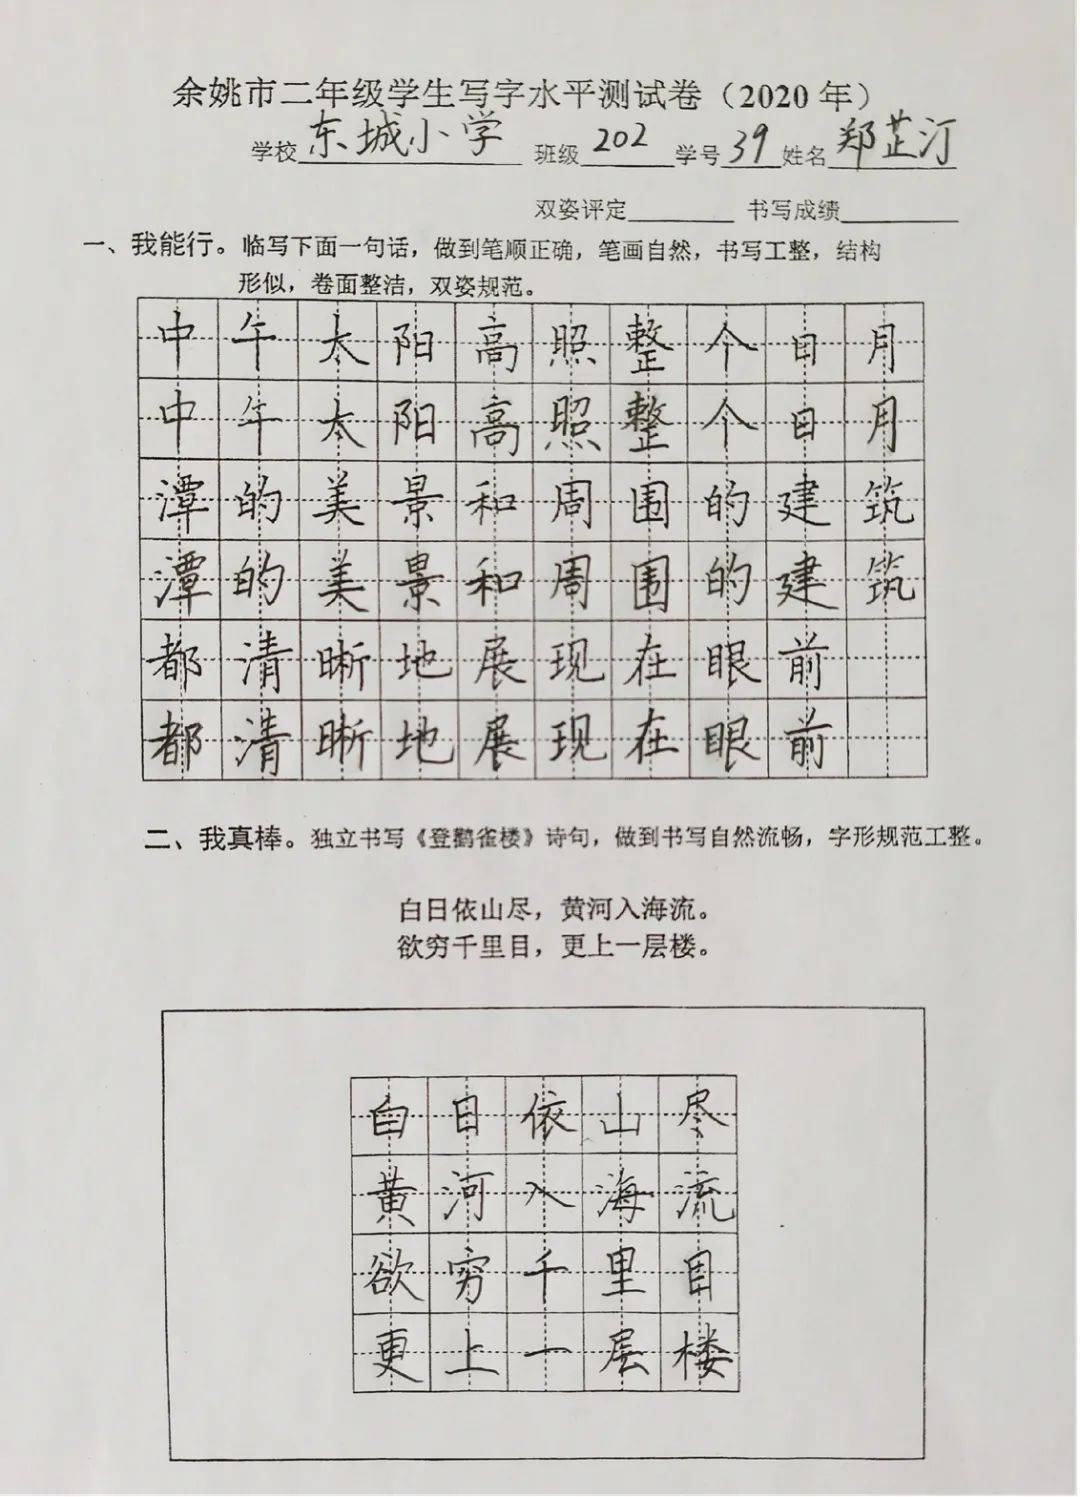 余姚市二年级学生写字水平测试卷（2020 年）
学校 东城小学 班级 202 学号 39 姓名 郑芷汀
双姿评定 书写成绩
一、我能行。临写下面一句话，做到笔顺正确，笔画自然，书写工整，结构
形似，卷面整洁，双姿规范。
中午太阳高照整个日月
中午太阳高照整个日月
潭的美景和周围的建筑
潭的美景和周围的建筑
都清晰地展现在眼前
都清晰地展现在眼前
二、我真棒。独立书写《登鹳雀楼》诗句，做到书写自然流畅，字形规范工整。
白日依山尽，黄河入海流。
欲穷千里目，更上一层楼。
白日依山尽
黄河入海流
欲穷千里目
更上一层楼